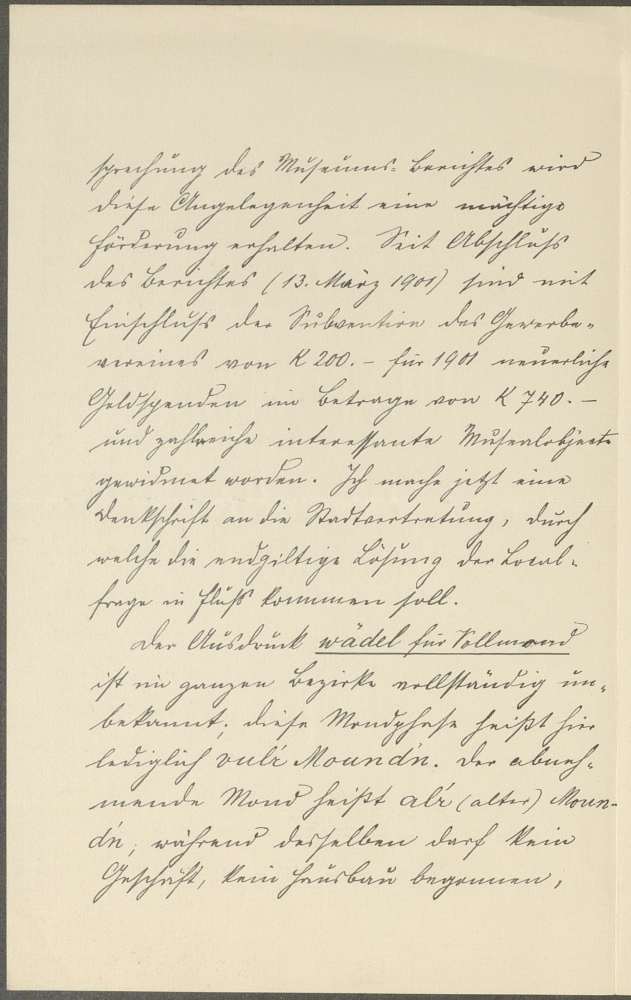 sprechung des Museums-Berichtes wird
diese Angelegenheit eine mächtige
Förderung erhalten. Seit Abschluß
des Berichtes (13. März 1901) sind mit
Einschluß der Subvention des Gewerbe-
vereines von K 200.- für 1901 neuerliche
Geldspenden im Betrage von K 740.-
und zahlreiche interessante Musealobjecte
gewidmet worden. Ich mache jetzt eine
Denkschrift an die Stadtvertretung, durch
welche die endgiltige Lösung der Local-
frage in Fluß kommen soll.
Der Ausdruck wädel für Vollmond
ist im ganzen Bezirke vollständig un-
bekannt; diese Mondphase heißt hier
lediglich vulʼr Moundʼn. Der abneh-
mende Mond heißt alʼr (alter) Moun-
dʼn; während desselben darf kein
Geschäft, kein Hausbau begonnen,